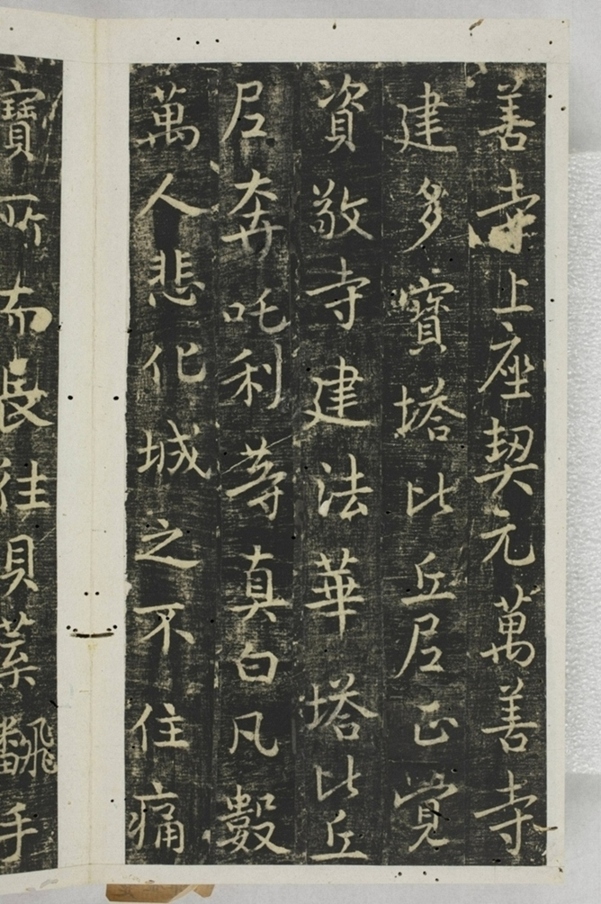 善寺上座契元萬善寺
建多寶塔比丘尼正覺
資敬寺建法華塔比丘
尼奔吒利等真白凡數
萬人悲化城之不住痛
寶所而長往貝葉飜手